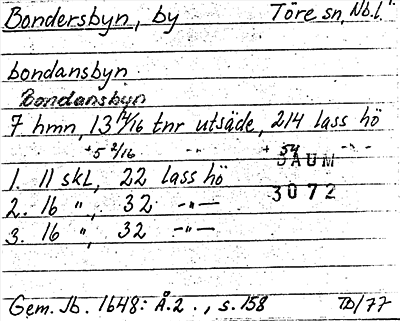 Bondersbyn, by Töre sn, Nb.l.
bondansbyn
Bondansbyn
7 hmn, 13 14/16 tnr utsäde, 214 lass hö
+5 2/16 -"- + 54 -"-
JAUM
1. 11 skl, 22 lass hö
3072
2. 16 ", 32 -"-
3. 16 ", 32 -"-
Gem. Jb. 1648: Å.2 ., s. 158 TD/77